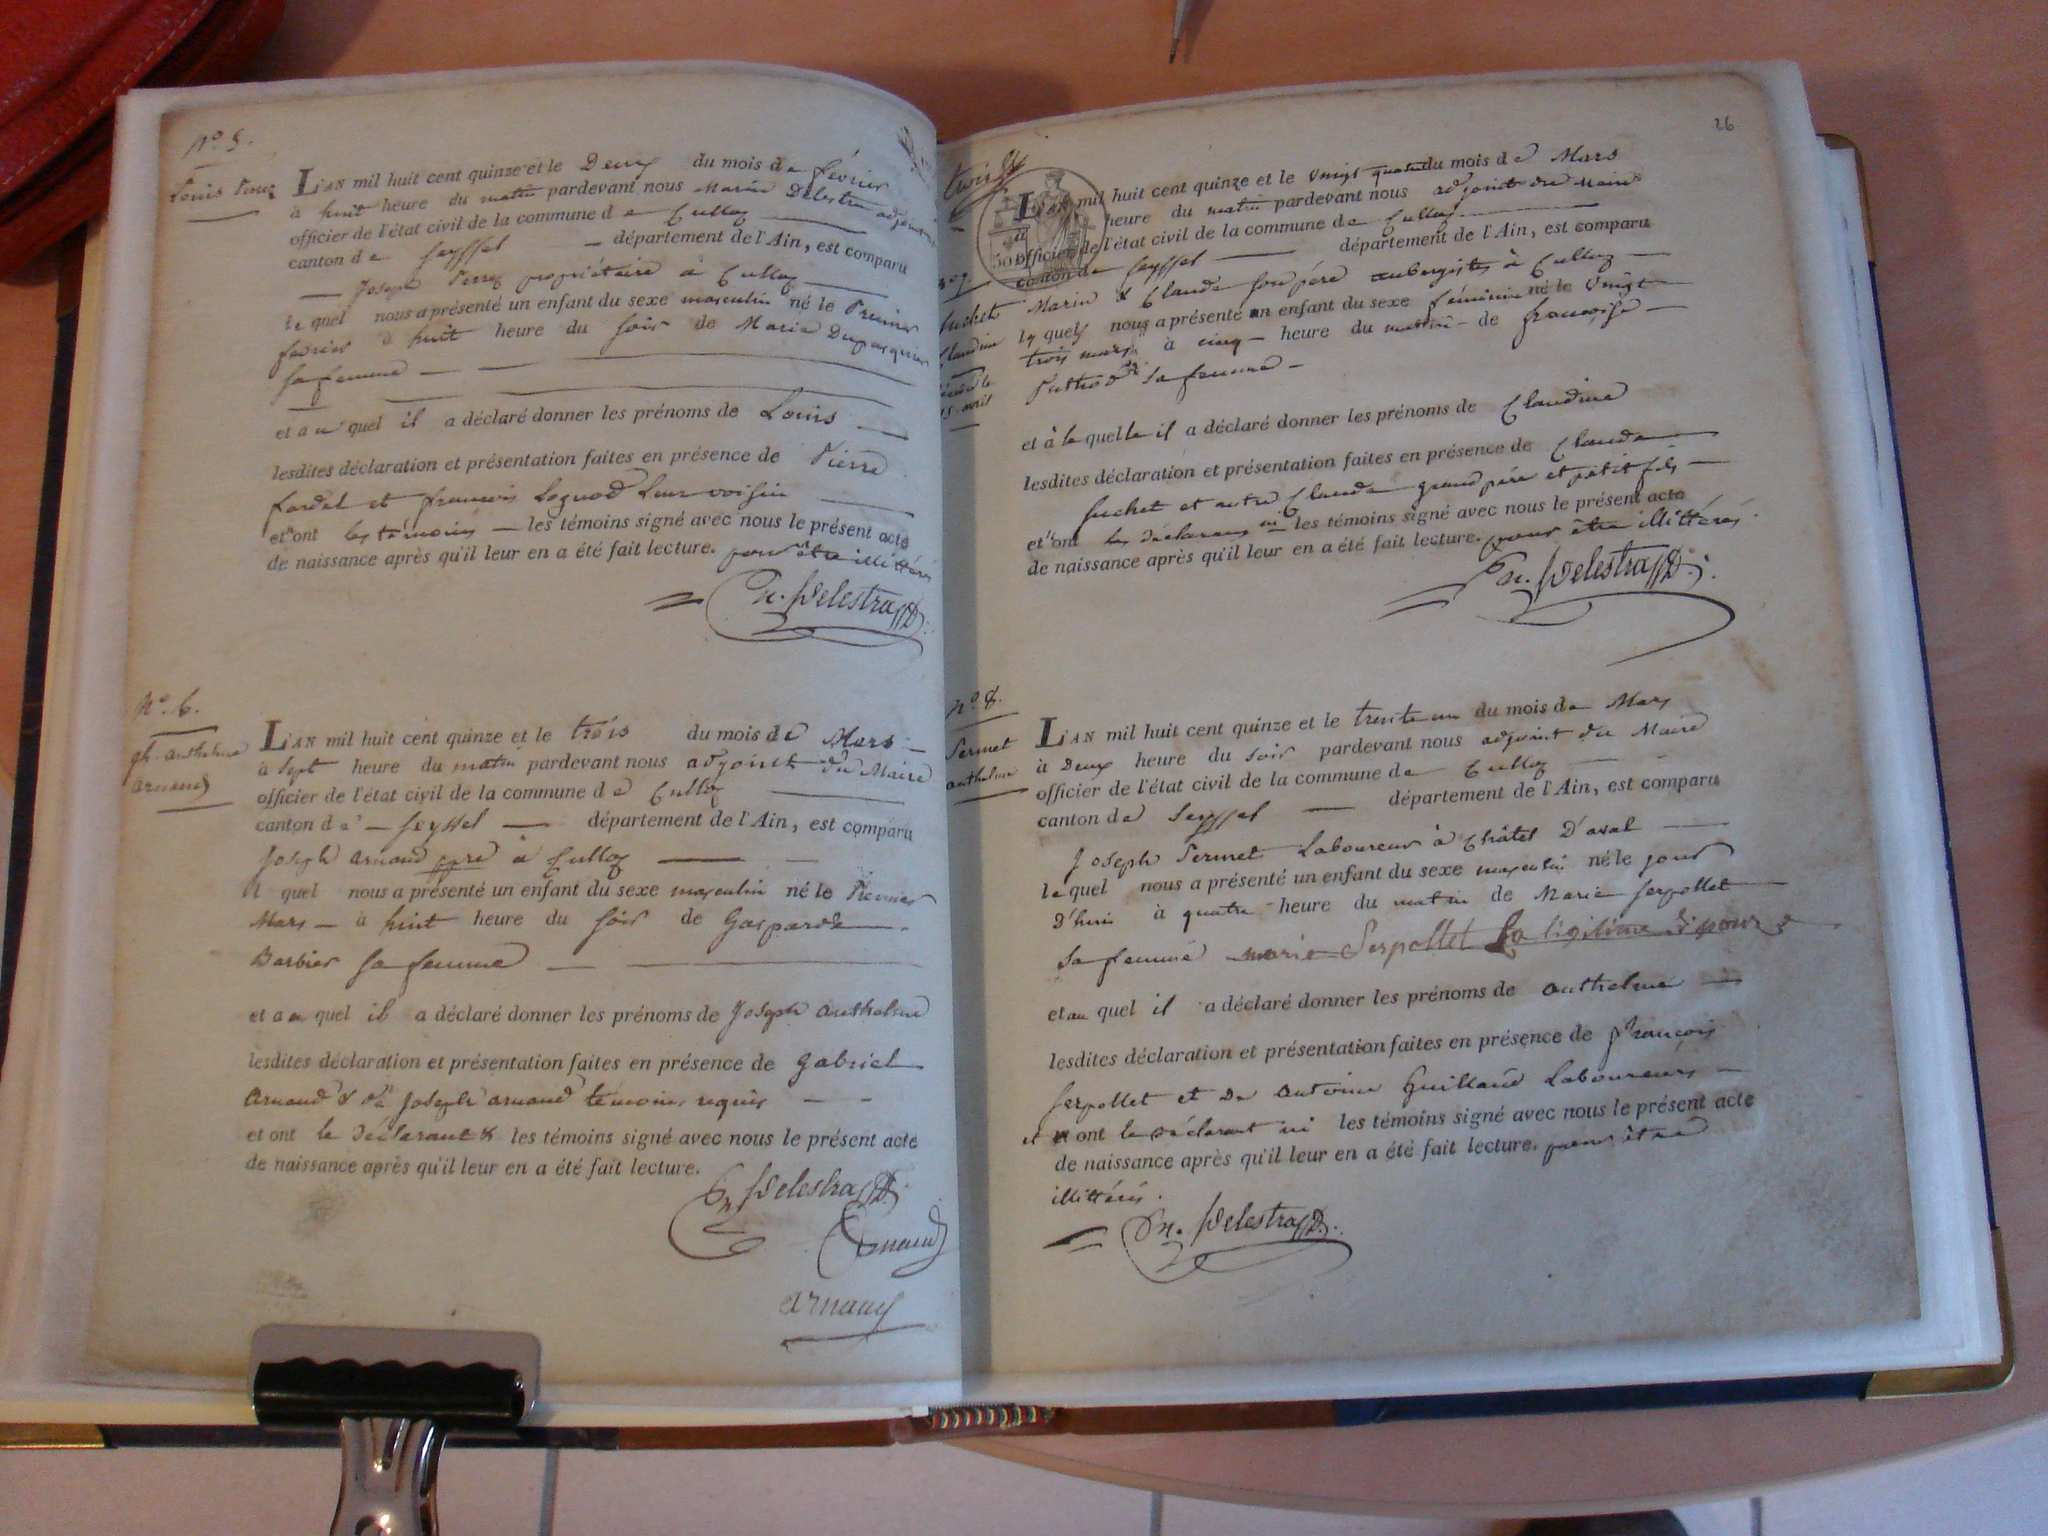 N° 5.
Louis Perrez
L'AN mil huit cent quinze et le Deux du mois de février
à huit heure du matin pardevant nous Marin Delestra adjoint
officier de l'état civil de la commune de Culloz
canton de Seyssel département de l'Ain, est comparu
Joseph Perrez propriétaire à Culloz
lequel nous a présenté un enfant du sexe masculin né le Premier
fevrier à huit heure du soir de Marie Dupasquier
sa femme
et au quel il a déclaré donner les prénoms de Louis
lesdites déclaration et présentation faites en présence de Pierre
fardel et françois leur voisin
et n'ont les témoins les témoins signé avec nous le présent acte
de naissance après qu'il leur en a été fait lecture. pour être illittérés
Delestra
N°. 6.
ph. anthelme
arnaud
L'AN mil huit cent quinze et le trois du mois de Mars
à Sept heure du matin pardevant nous adjoint du Maire
officier de l'état civil de la commune de Culloz
canton de Seyssel département de l'Ain, est comparu
Joseph arnaud ppre à Culloz
l quel nous a présenté un enfant du sexe masculin né le Premier
Mars à huit heure du soir de Gasparde
Barbier sa femme
et au quel il a déclaré donner les prénoms de Joseph anthelme
lesdites déclaration et présentation faites en présence de Gabriel
Arnaud & de Joseph arnaud témoins requis
et ont le déclarant & les témoins signé avec nous le présent acte
de naissance après qu'il leur en a été fait lecture.
Delestra
Arnaud
arnaud
26
L'AN mil huit cent quinze et le vingt quatre du mois de Mars
à heure du matin pardevant nous adjoint du Maire
officier de l'état civil de la commune de Culloz
canton de Seyssel département de l'Ain, est comparu
n° 7
Suchet
Claudine
Marin & Claude son père aubergistes à Culloz
lq quels nous a présenté un enfant du sexe féminin né le Vingt
trois mars à cinq heure du matin de françoise
sa femme
et à la quelle il a déclaré donner les prénoms de Claudine
lesdites déclaration et présentation faites en présence de Claude
Suchet et autre Claude grand père et petit fils
et n'ont les déclarans ni les témoins signé avec nous le présent acte
de naissance après qu'il leur en a été fait lecture. pour être illittérés.
Delestra
n° 8.
Sermet
anthelme
L'AN mil huit cent quinze et le trente un du mois de Mars
à Deux heure du soir pardevant nous adjoint du Maire
officier de l'état civil de la commune de Culloz
canton de Seyssel département de l'Ain, est comparu
Joseph Sermet Laboureur à Châtel D'aval
lequel nous a présenté un enfant du sexe masculin né le jour
D'hui à quatre heure du matin de Marie Serpollet
sa femme marie Serpollet sa ligitime Epouse
et au quel il a déclaré donner les prénoms de anthelme
lesdites déclaration et présentation faites en présence de françois
Serpollet et De antoine Guilland Laboureurs
et n ont le déclarant ni les témoins signé avec nous le présent acte
de naissance après qu'il leur en a été fait lecture. pour être
illittérés.
Delestra